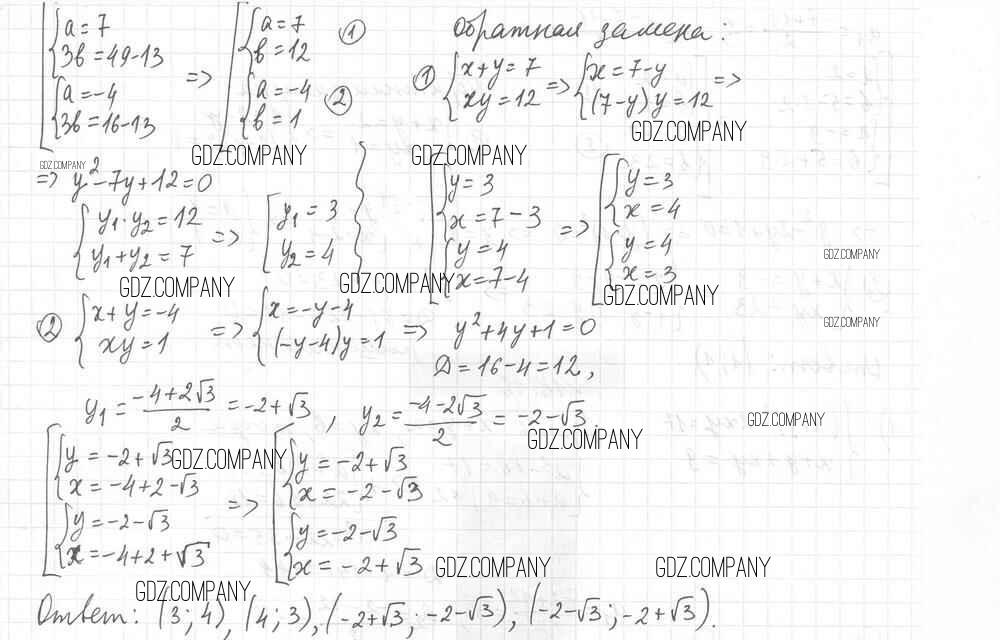 [ { a = 7
3b = 49-13
{ a = -4
3b = 16-13
=> [ { a = 7
b = 12 ①
{ a = -4
b = 1 ②
Обратная замена:
① { x+y = 7
xy = 12
=> { x = 7-y
(7-y)y = 12 =>
GDZ.COMPANY
GDZ.COMPANY
GDZ.COMPANY
GDZ.COMPANY
=> y² - 7y + 12 = 0
{ y₁·y₂ = 12
y₁+y₂ = 7
=> [ y₁ = 3
y₂ = 4
[ { y = 3
x = 7-3
{ y = 4
x = 7-4
=> [ { y = 3
x = 4
{ y = 4
x = 3
GDZ.COMPANY
GDZ.COMPANY
GDZ.COMPANY
GDZ.COMPANY
② { x+y = -4
xy = 1
=> { x = -y-4
(-y-4)y = 1
=> y²+4y+1 = 0
GDZ.COMPANY
D = 16-4 = 12,
y₁ = (-4+2√3)/2 = -2+√3, y₂ = (-4-2√3)/2 = -2-√3.
GDZ.COMPANY
GDZ.COMPANY
GDZ.COMPANY
[ { y = -2+√3
x = -4+2-√3
{ y = -2-√3
x = -4+2+√3
=> [ { y = -2+√3
x = -2-√3
{ y = -2-√3
x = -2+√3
GDZ.COMPANY
GDZ.COMPANY
GDZ.COMPANY
Ответ: (3; 4), (4; 3), (-2+√3; -2-√3), (-2-√3; -2+√3).